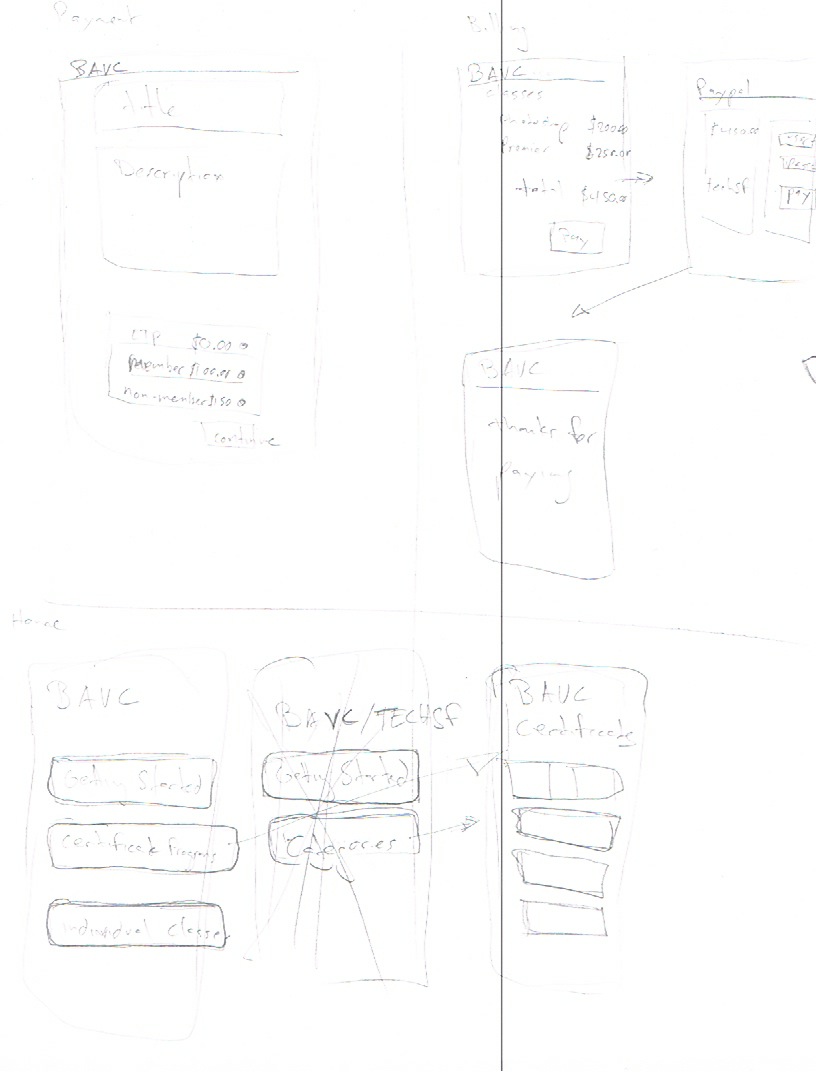 Payment
BAVC
title
Description
ITP $0.00
member $100.00
non-member $150
continue
Billing
BAVC
classes
$200.00
Premier $250.00
total $450.00
Pay
Paypal
$450.00
techsf
Pay
BAVC
thanks for
paying
Home
BAVC
Getting Started
Certificate Programs
individual classes
BAVC/TECHSF
Getting Started
Categories
BAVC
Certificate